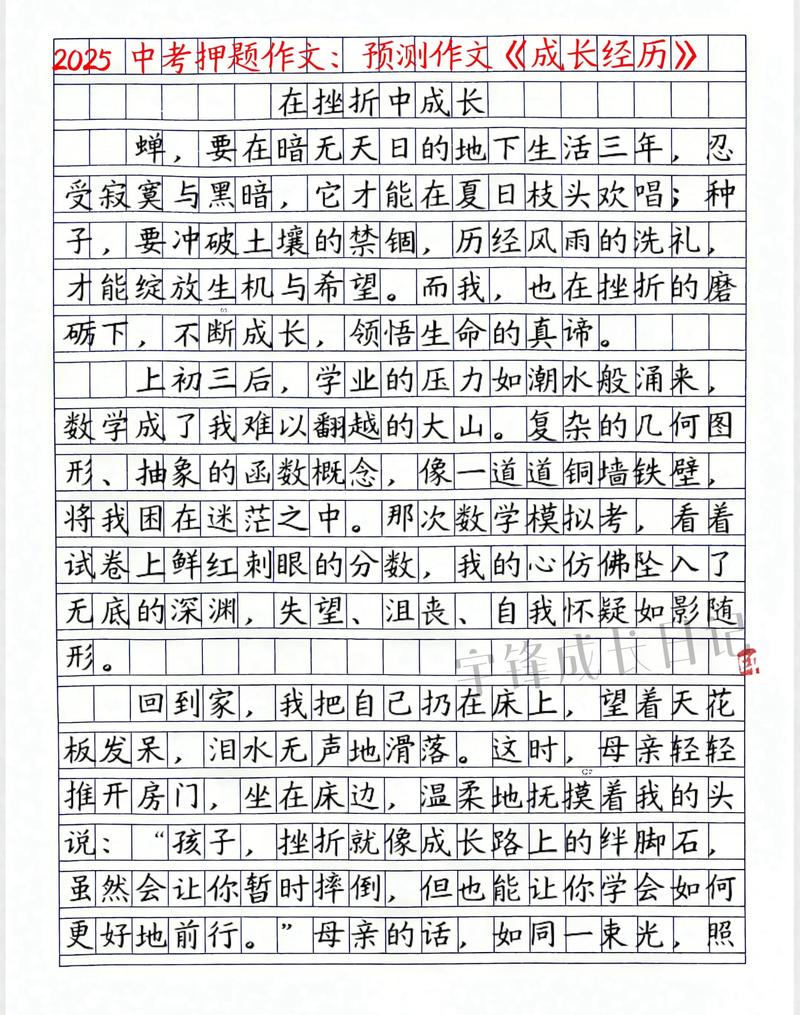 2025 中考押题作文：预测作文《成长经历》
在挫折中成长
蝉，要在暗无天日的地下生活三年，忍
受寂寞与黑暗，它才能在夏日枝头欢唱；种
子，要冲破土壤的禁锢，历经风雨的洗礼，
才能绽放生机与希望。而我，也在挫折的磨
砺下，不断成长，领悟生命的真谛。
上初三后，学业的压力如潮水般涌来，
数学成了我难以翻越的大山。复杂的几何图
形、抽象的函数概念，像一道道铜墙铁壁，
将我困在迷茫之中。那次数学模拟考，看着
试卷上鲜红刺眼的分数，我的心仿佛坠入了
无底的深渊，失望、沮丧、自我怀疑如影随
形。
宇锋成长日记
回到家，我把自己扔在床上，望着天花
板发呆，泪水无声地滑落。这时，母亲轻轻
推开房门，坐在床边，温柔地抚摸着我的头
说：“孩子，挫折就像成长路上的绊脚石，
虽然会让你暂时摔倒，但也能让你学会如何
更好地前行。”母亲的话，如同一束光，照